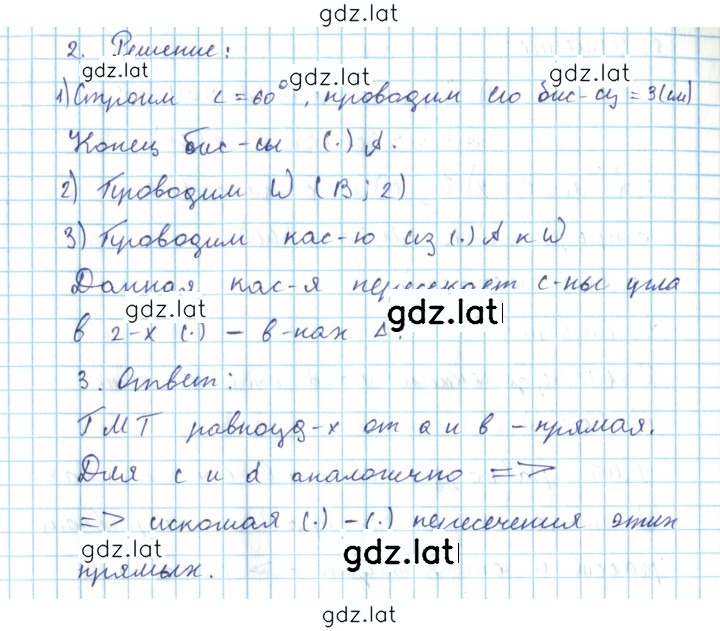 gdz.lat
2. Решение:
gdz.lat gdz.lat gdz.lat
1) Строим ∠ = 60°, проводим его бис-су = 3(см)
Конец бис-сы (·) A.
2) Проводим W (B; 2)
3) Проводим кас-ю из (·) A к W
Данная кас-я пересекает с-ны угла
gdz.lat gdz.lat
в 2-х (·) - в-нах Δ.
3. Ответ:
ГМТ равноуд-х от a и b - прямая.
Для c и d аналогично =>
=> искомая (·) - (·) пересечения этих
gdz.lat gdz.lat
прямых.
gdz.lat